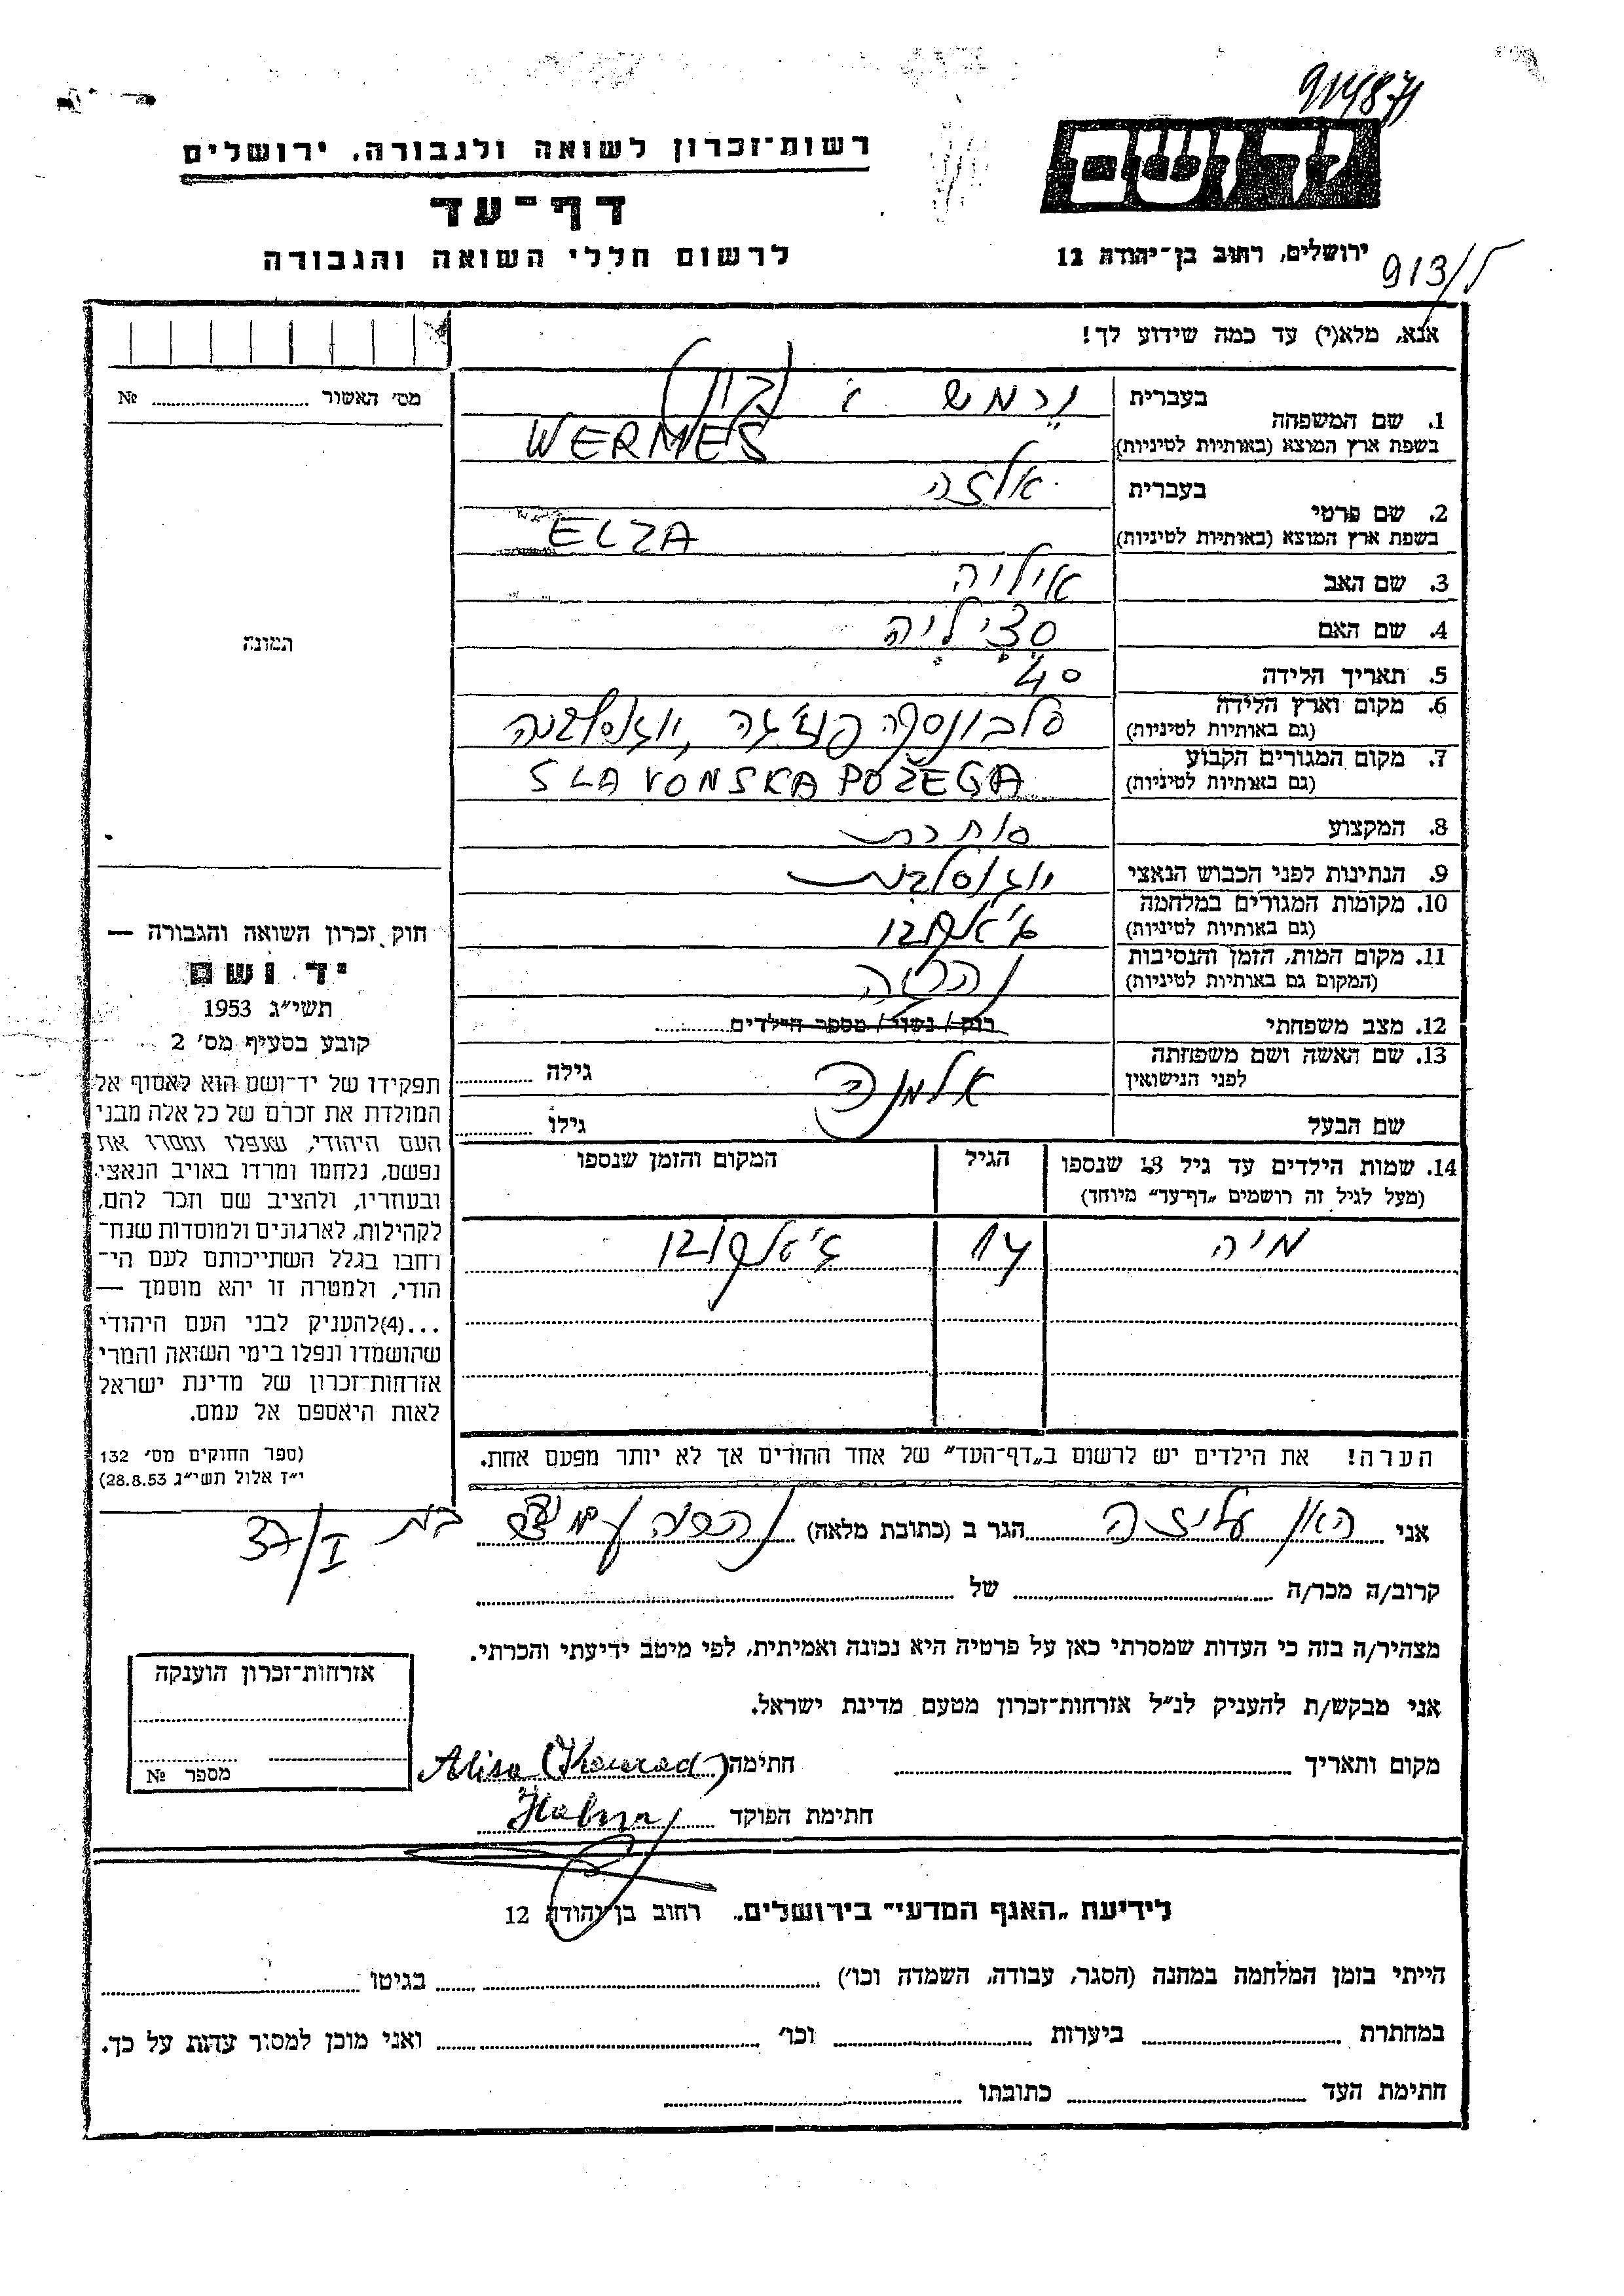 914871
רשות־זכרון לשואה ולגבורה, ירושלים
דף־עד
לרשום חללי השואה והגבורה
יד ושם
ירושלים, רחוב בן־יהודה 12
913/5
אנא, מלא(י) עד כמה שידוע לך!
מס׳ האשור № 
1. שם המשפחה
בעברית ורמש
בשפת ארץ המוצא (באותיות לטיניות) WERMES
2. שם פרטי
בעברית אלזה
בשפת ארץ המוצא (באותיות לטיניות) ELZA
3. שם האב איליה
4. שם האם צציליה
התמונה
5. תאריך הלידה 40
6. מקום וארץ הלידה (גם באותיות לטיניות) סלבונסקה פוז׳גה, יוגוסלביה
7. מקום המגורים הקבוע (גם באותיות לטיניות) SLAVONSKA POŽEGA
8. המקצוע סוחרת
9. הנתינות לפני הכבוש הנאצי יוגוסלבית
10. מקומות המגורים במלחמה (גם באותיות לטיניות) ג׳אקובו
11. מקום המות, הזמן והנסיבות (המקום גם באותיות לטיניות)
12. מצב משפחתי רוק / נשוי / מספר הילדים
13. שם האשה ושם משפחתה לפני הנישואין אלמנה גילה
שם הבעל גילו
14. שמות הילדים עד גיל 18 שנספו (מעל לגיל זה רושמים „דף־עד״ מיוחד) הגיל המקום והזמן שנספו
מיה 14 ג׳אקובו
הערה! את הילדים יש לרשום ב„דף־העד״ של אחד ההורים אך לא יותר מפעם אחת.
חוק זכרון השואה והגבורה —
יד ושם
תשי״ג 1953
קובע בסעיף מס׳ 2
תפקידו של יד־ושם הוא לאסוף אל
המולדת את זכרם של כל אלה מבני
העם היהודי, שנפלו ומסרו את
נפשם, נלחמו ומרדו באויב הנאצי
ובעוזריו, ולהציב שם וזכר להם,
לקהילות, לארגונים ולמוסדות שנח־
רחבו בגלל השתייכותם לעם הי־
הודי, ולמטרה זו יהא מוסמך —
...(4)להעניק לבני העם היהודי
שהושמדו ונפלו בימי השואה והמרי
אזרחות־זכרון של מדינת ישראל
לאות היאספם אל עמם.
(ספר החוקים מס׳ 132
י״ז אלול תשי״ג 28.8.53)
אני האן עליזה הגר ב (כתובת מלאה) נהריה 37/I
קרוב/ה מכר/ה של
מצהיר/ה בזה כי העדות שמסרתי כאן על פרטיה היא נכונה ואמיתית, לפי מיטב ידיעתי והכרתי.
אני מבקש/ת להעניק לנ״ל אזרחות־זכרון מטעם מדינת ישראל.
מקום ותאריך חתימה Alisa (Konrad)
חתימת הפוקד
אזרחות־זכרון הוענקה
מספר №
לידיעת „האגף המדעי״ בירושלים, רחוב בן־יהודה 12
הייתי בזמן המלחמה במחנה (הסגר, עבודה, השמדה וכו׳) בגיטו
במחתרת ביערות וכו׳ ואני מוכן למסור עדות על כך.
חתימת העד כתובתו